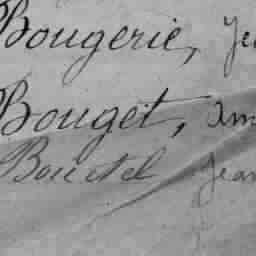 Bougerie, Je
Bouget, am
Bouctel Jean